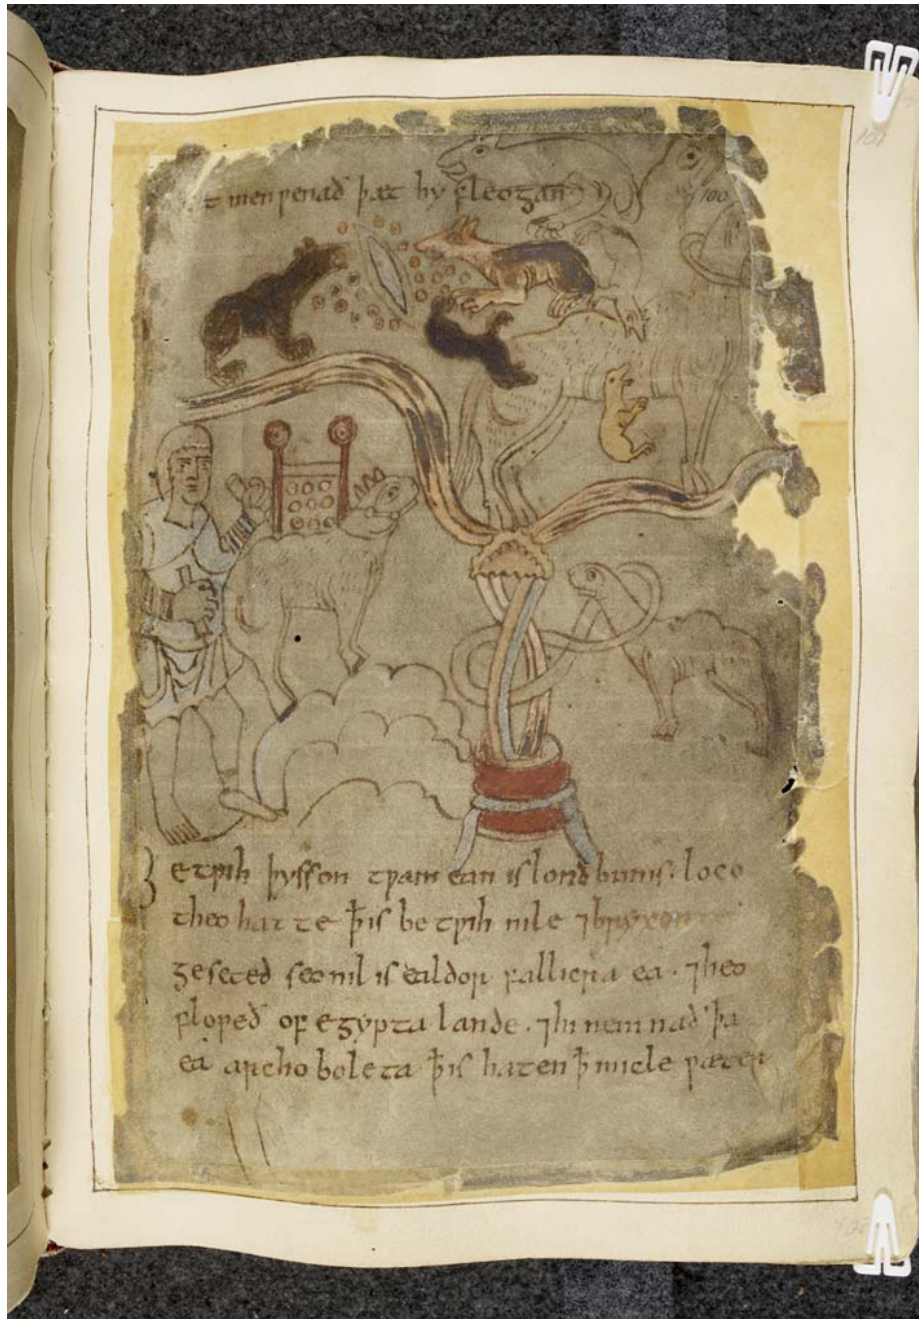 men penað þæt hy fleogan
100
101
Betƿih þysson tƿam ean is lond bunis . loco
theo hatte ꝥ is betƿih nile ⁊
geseted seo nil is ealdor fallicra ea . ⁊ heo
floƿeð of egypta lande . ⁊ hi nemnað þa
ea archoboleta ꝥ is haten ꝥ micle ƿæter